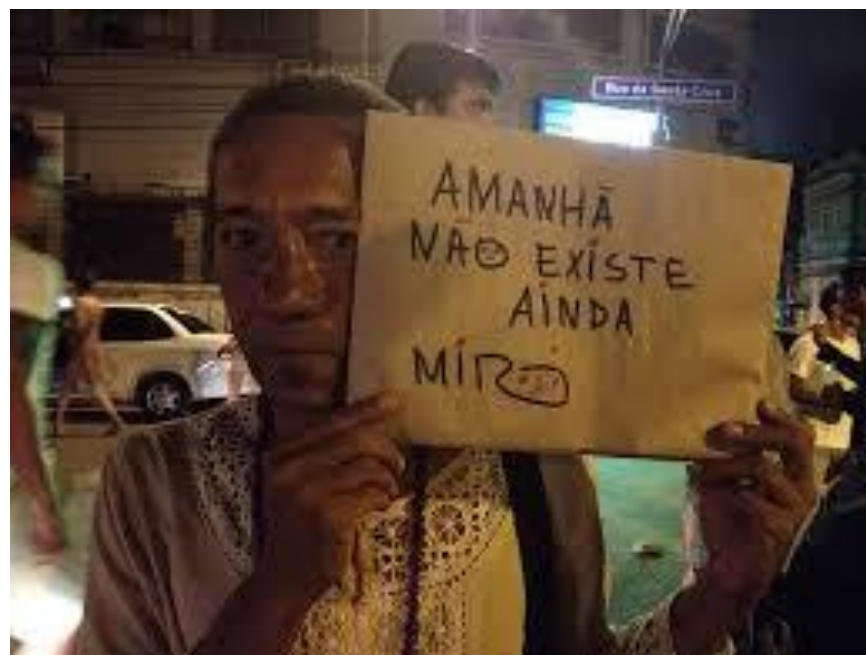 Rua de Santa Cruz
AMANHÃ
NÃO EXISTE
AINDA
MIRÓ